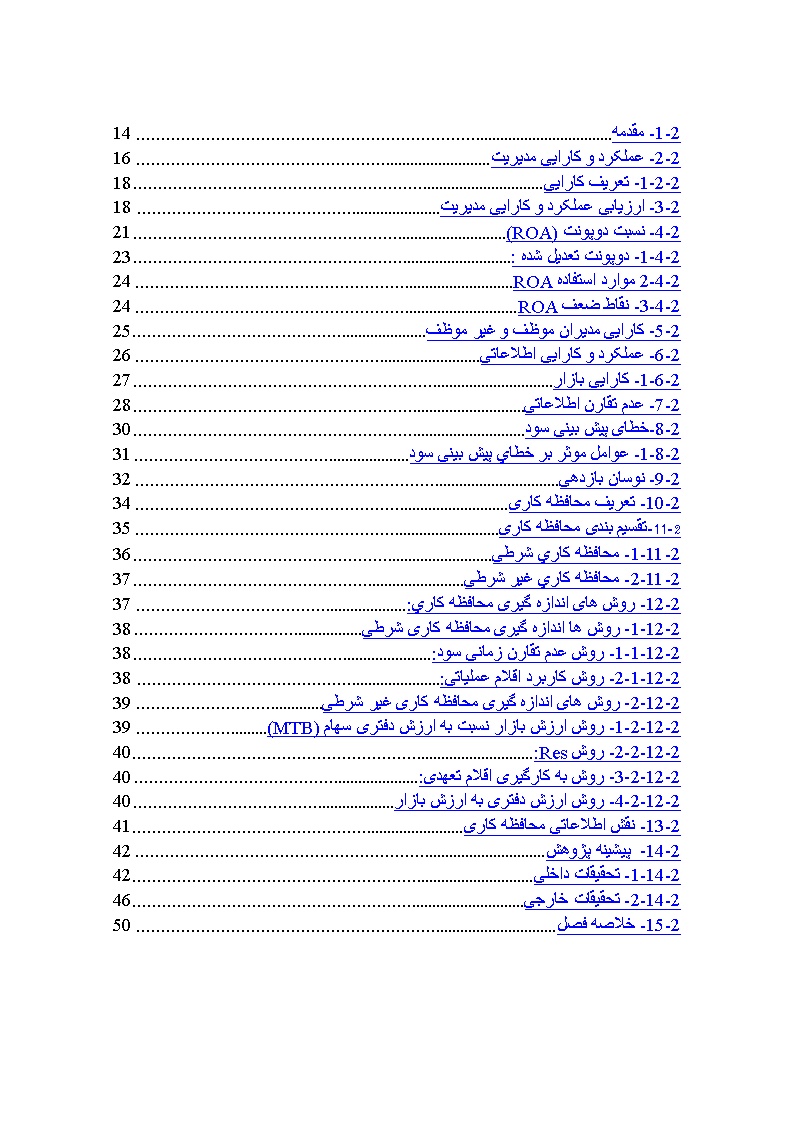 2-1- مقدمه 14
2-2- عملکرد و کارایی مدیریت 16
2-2-1- تعریف کارایی 18
2-3- ارزیابی عملکرد و کارایی مدیریت 18
2-4- نسبت دوپونت (ROA) 21
2-4-1- دوپونت تعدیل شده : 23
2-4-2 موارد استفاده ROA 24
2-4-3- نقاط ضعف ROA 24
2-5- کارایی مدیران موظف و غیر موظف 25
2-6- عملکرد و کارایی اطلاعاتی 26
2-6-1- کارایی بازار 27
2-7- عدم تقارن اطلاعاتی 28
2-8-خطای پیش بینی سود 30
2-8-1- عوامل موثر بر خطاي پیش بینی سود 31
2-9- نوسان بازدهی 32
2-10- تعریف محافظه کاری 34
2-11-تقسیم بندی محافظه کاری 35
2-11-1- محافظه کاري شرطی 36
2-11-2- محافظه کاري غیر شرطی 37
2-12- روش های اندازه گیری محافظه کاري: 37
2-12-1- روش ها اندازه گیری محافظه کاری شرطی 38
2-12-1-1- روش عدم تقارن زمانی سود: 38
2-12-1-2- روش کاربرد اقلام عملیاتی: 38
2-12-2- روش های اندازه گیری محافظه کاری غیر شرطی 39
2-12-2-1- روش ارزش بازار نسبت به ارزش دفتری سهام (MTB) 39
2-12-2-2- روش Res: 40
2-12-2-3- روش به کارگیری اقلام تعهدی: 40
2-12-2-4- روش ارزش دفتری به ارزش بازار 40
2-13- نقش اطلاعاتی محافظه کاری 41
2-14- پیشینه پژوهش 42
2-14-1- تحقیقات داخلی 42
2-14-2- تحقیقات خارجی 46
2-15- خلاصه فصل 50